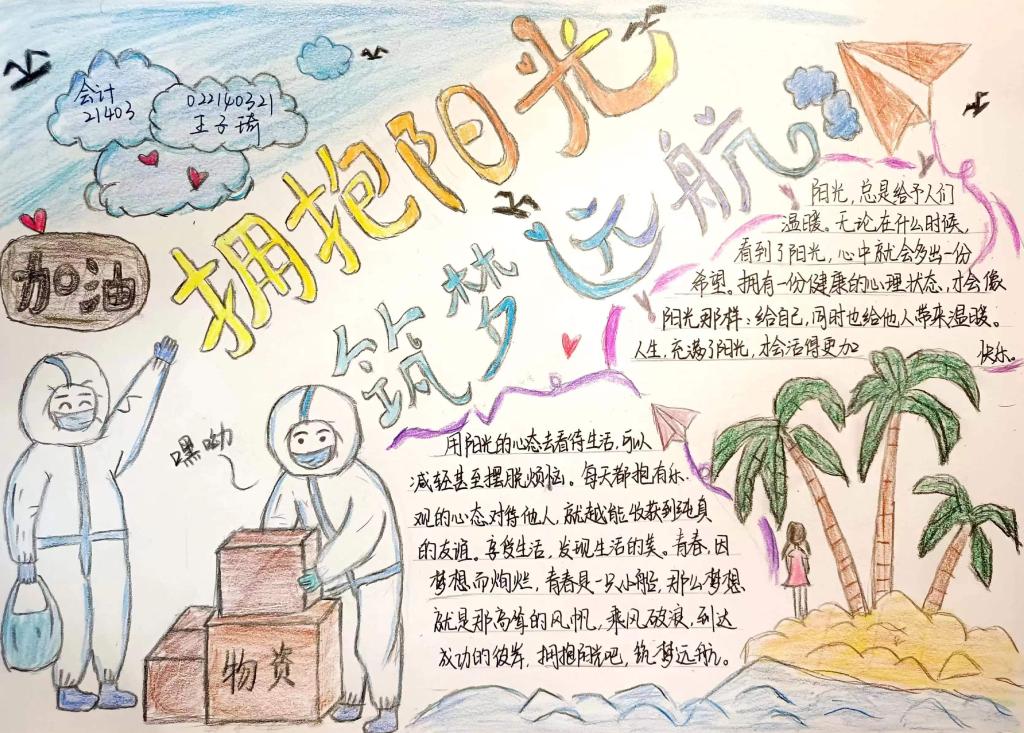 会计
21403
022140321
王子琦
拥抱阳光
筑梦远航
加油
阳光,总是给予人们
温暖。无论在什么时候,
看到了阳光,心中就会多出一份
希望。拥有一份健康的心理状态,才会像
阳光那样:给自己,同时也给他人带来温暖。
人生,充满了阳光,才会活得更加
快乐。
嘿呦
物资
用阳光的心态去看待生活,可以
减轻甚至摆脱烦恼。每天都抱有乐
观的心态对待他人,就越能收获到纯真
的友谊。享受生活,发现生活的美。青春,因
梦想而炯烂,青春是一只小船,那么梦想
就是那高耸的风帆,乘风破浪,到达
成功的彼岸,拥抱阳光吧,筑梦远航。